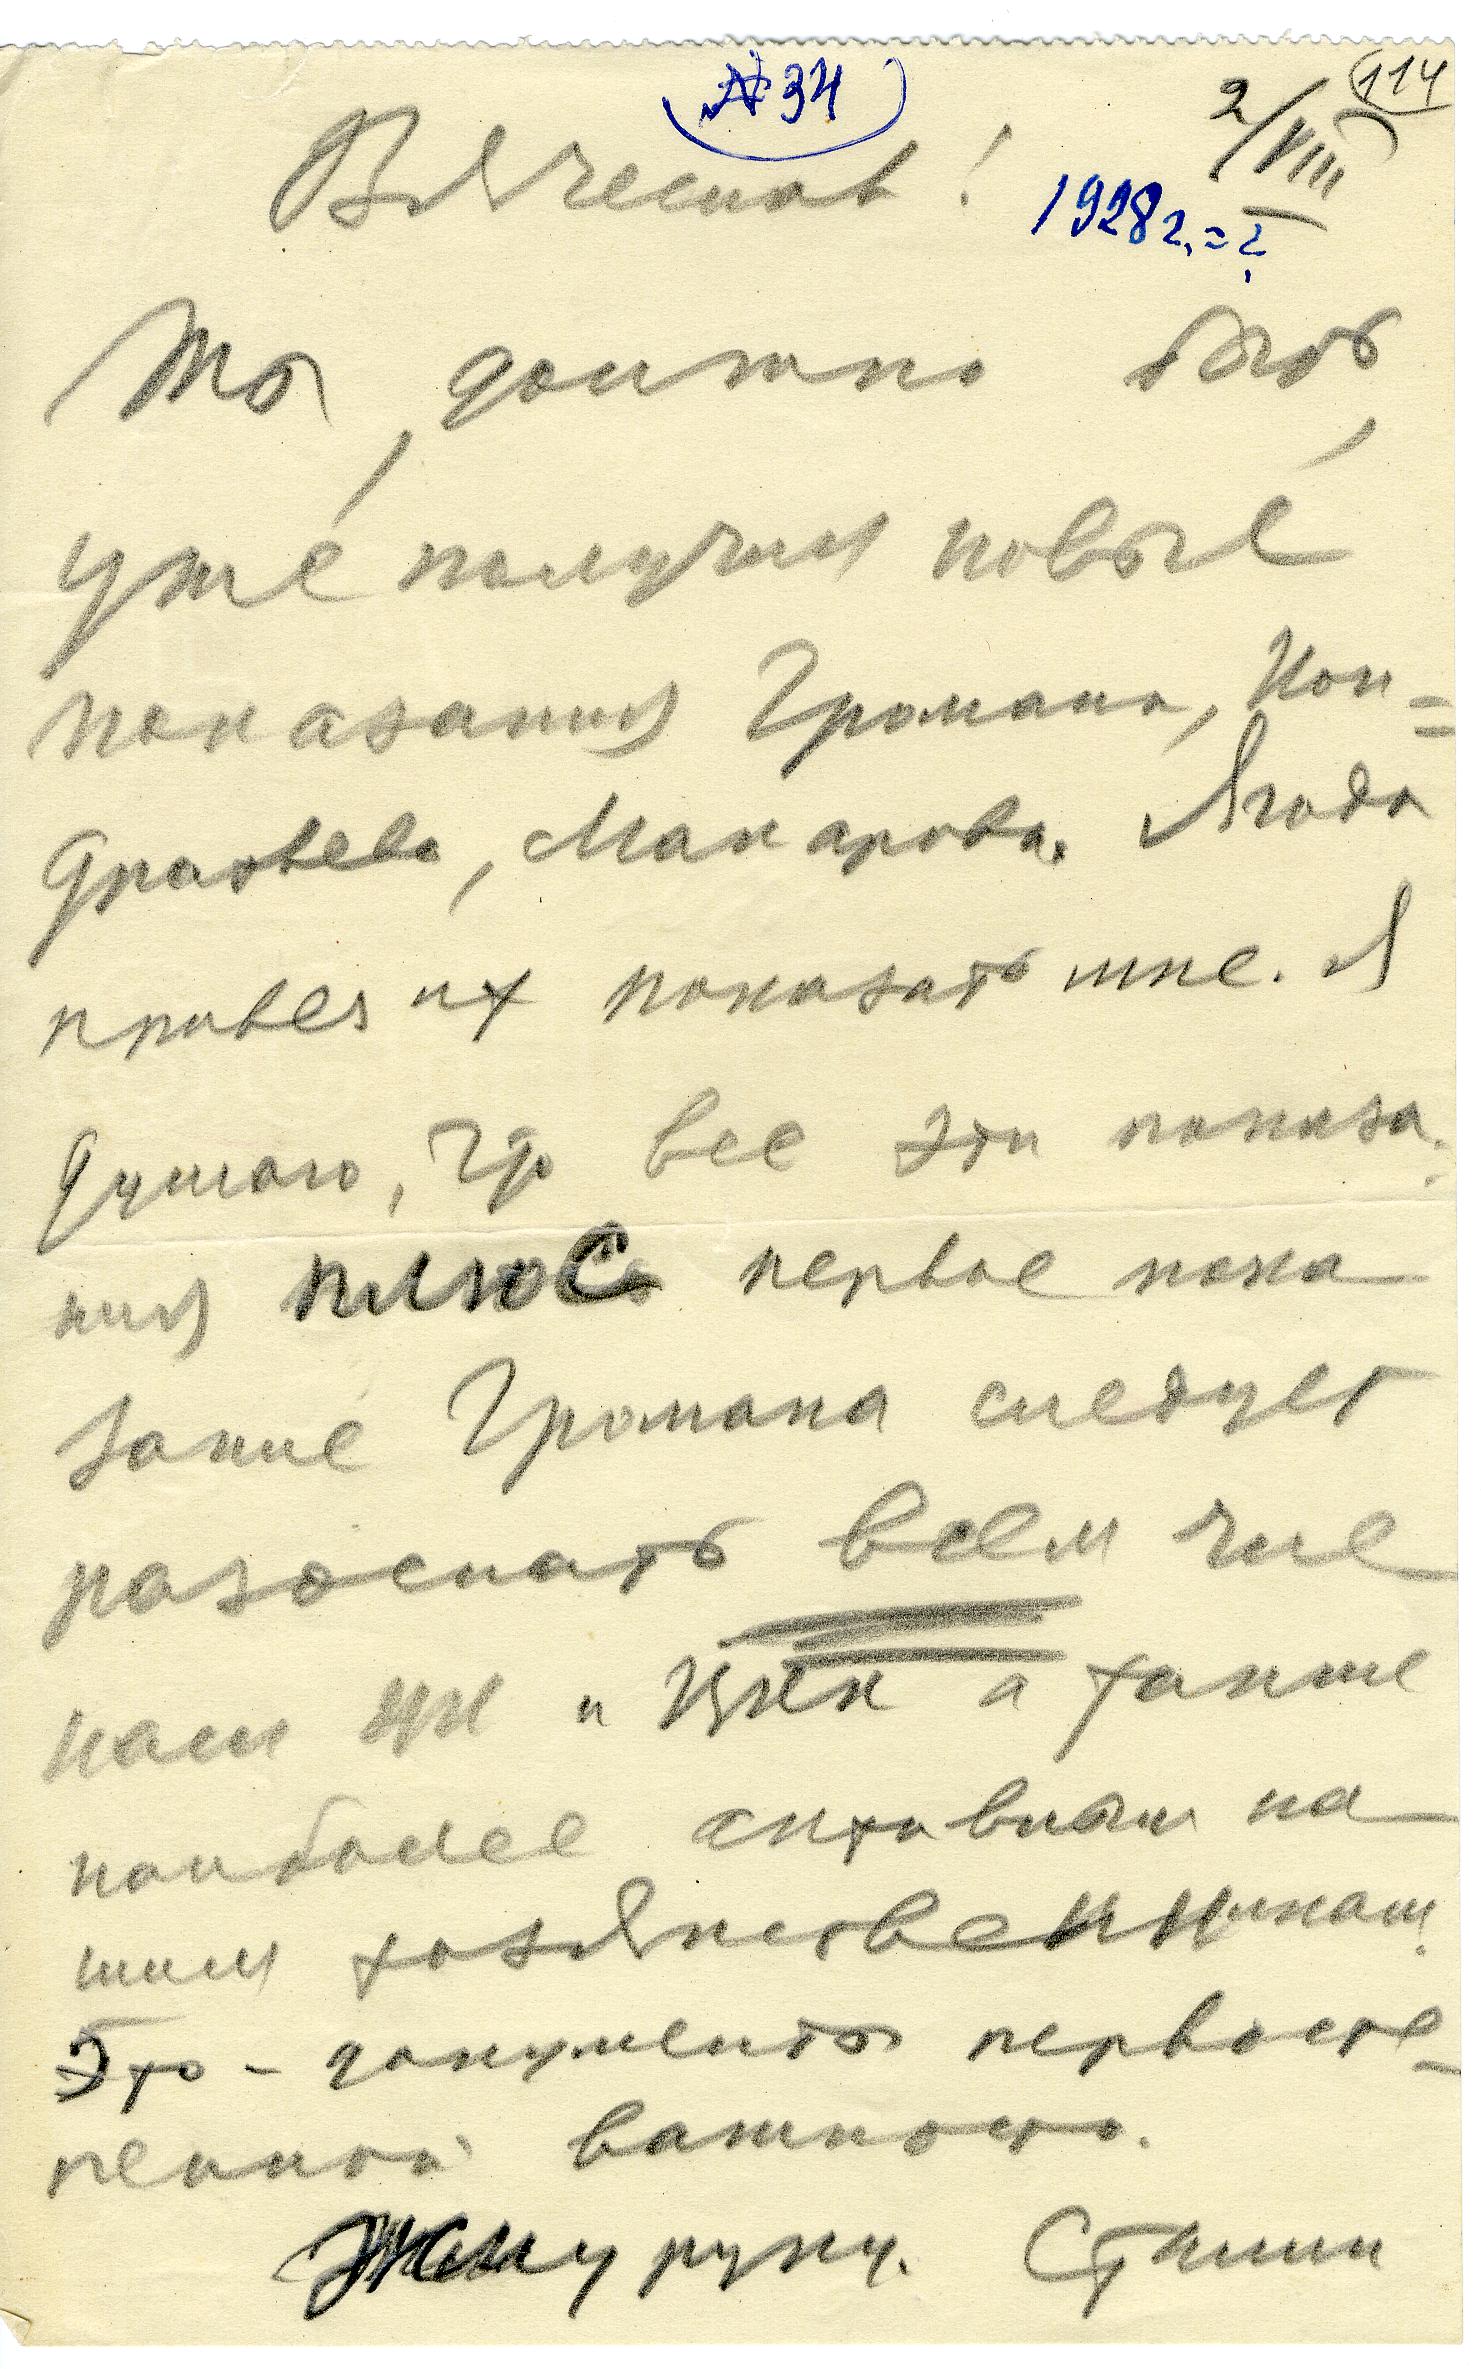 № 34
114
2/VIII
Вячеслав!
1928 г. = ?
Ты, должно быть,
уже получил новые
показания Громана, Кон=
дратьева, Макарова. Ягода
привез их показать мне. Я
думаю, что все эти показа-
ния плюс первое пока
зание Громана следует
разослать всем чле
нам ЦК и ЦКК а также
наиболее активным на
шим хозяйственникам.
Это – документы первосте-
пенной важности.
Жму руку. Сталин